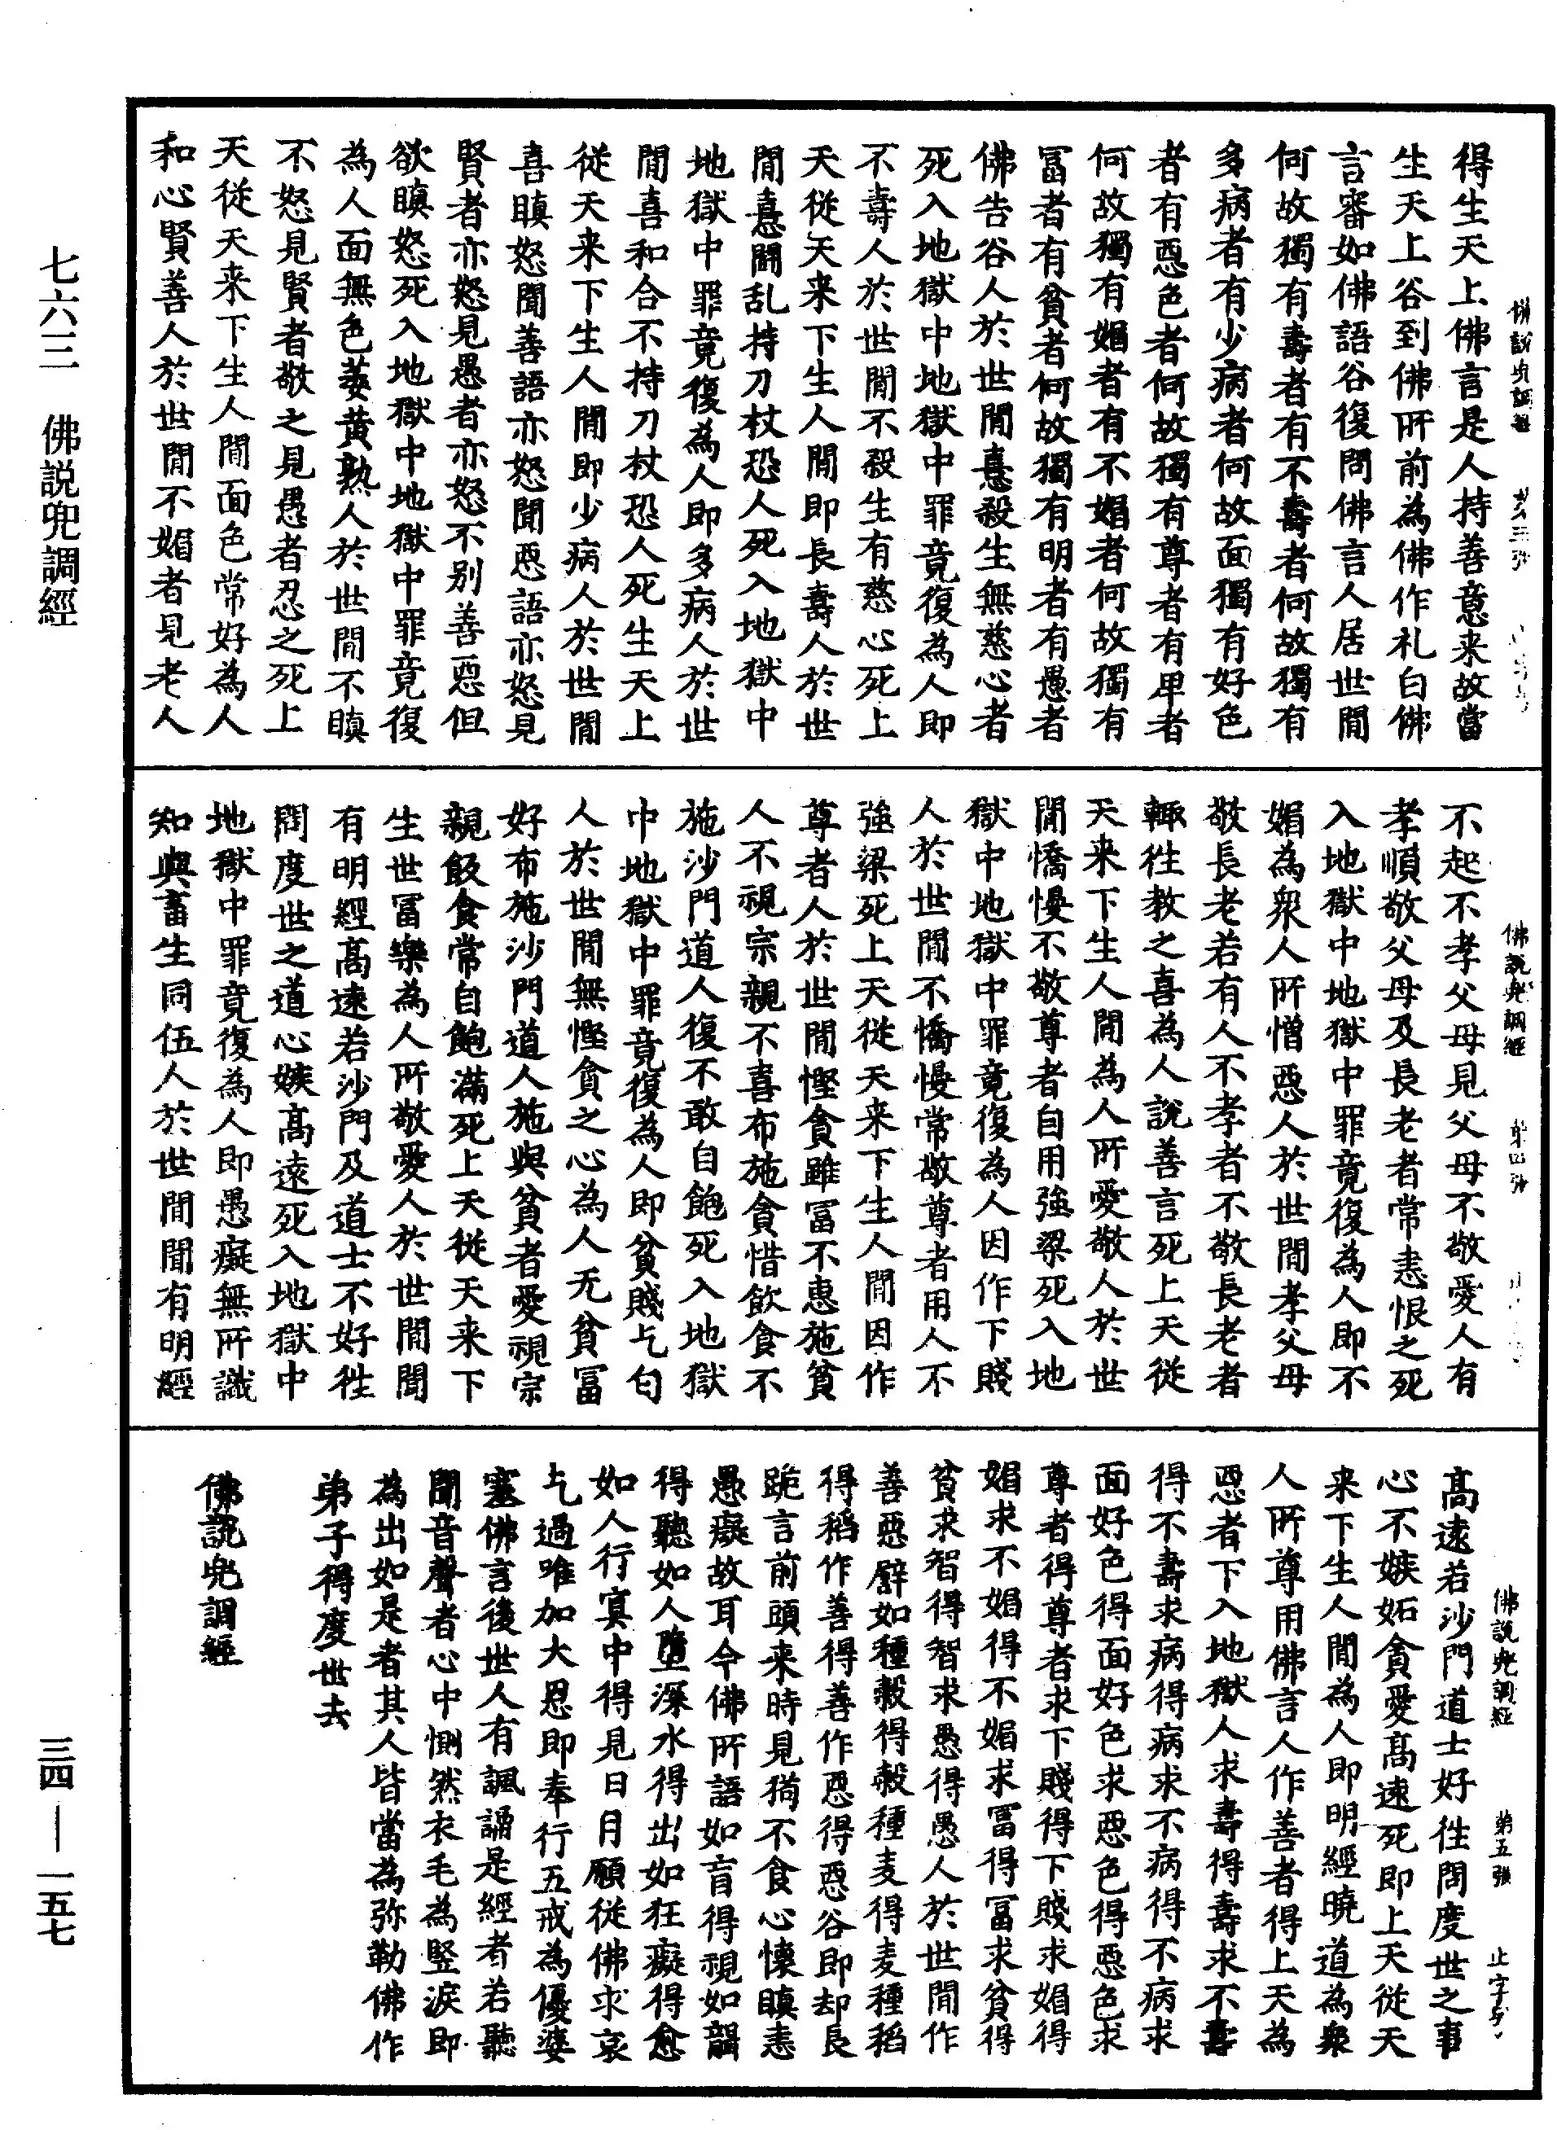 得生天上佛言是人持善意来故當
生天上谷到佛所前為佛作礼白佛
言審如佛語谷復問佛言人居世間
何故獨有壽者有不壽者何故獨有
多病者有少病者何故面獨有好色
者有惡色者何故獨有尊者有卑者
何故獨有媚者有不媚者何故獨有
冨者有貧者何故獨有明者有愚者
佛告谷人於世間憙殺生無慈心者
死入地獄中地獄中罪竟復為人即
不壽人於世間不殺生有慈心死上
天從天来下生人間即長壽人於世
間憙鬪乱持刀杖恐人死入地獄中
地獄中罪竟復為人即多病人於世
間喜和合不持刀杖恐人死生天上
從天来下生人間即少病人於世間
喜瞋怒聞善語亦怒聞惡語亦怒見
賢者亦怒見愚者亦怒不别善惡但
欲瞋怒死入地獄中地獄中罪竟復
為人面無色萎黄熟人於世間不瞋
不怒見賢者敬之見愚者忍之死上
天從天来下生人間面色常好為人
和心賢善人於世間不媚者見老人
佛說兜調經
不起不孝父母見父母不敬愛人有
孝順敬父母及長老者常恚恨之死
入地獄中地獄中罪竟復為人即不
媚為衆人所憎惡人於世間孝父母
敬長老若有人不孝者不敬長老者
輒往教之喜為人說善言死上天從
天来下生人間為人所愛敬人於世
間憍慢不敬尊者自用強梁死入地
獄中地獄中罪竟復為人因作下賤
人於世間不憍慢常敬尊者用人不
強梁死上天從天来下生人間因作
尊者人於世間慳貪雖冨不惠施貧
人不視宗親不喜布施貪惜飲食不
施沙門道人復不敢自飽死入地獄
中地獄中罪竟復為人即貧賤乞匂
人於世間無慳貪之心為人无貧冨
好布施沙門道人施與貧者愛視宗
親飯食常自飽滿死上天從天来下
生世冨樂為人所敬愛人於世間聞
有明經髙遠若沙門及道士不好往
問度世之道心嫉髙遠死入地獄中
地獄中罪竟復為人即愚癡無所識
知與畜生同伍人於世間聞有明經
佛說兜調經　第五張　止字号
髙遠若沙門道士好往問度世之事
心不嫉妬貪愛髙速死即上天從天
来下生人間為人即明經曉道為衆
人所尊用佛言人作善者得上天為
惡者下入地獄人求壽得壽求不壽
得不壽求病得病求不病得不病求
面好色得面好色求惡色得惡色求
尊者得尊者求下賤得下賤求媚得
媚求不媚得不媚求冨得冨求貧得
貧求智得智求愚得愚人於世間作
善惡譬如種穀得穀種麦得麦種稻
得稻作善得善作惡得惡谷即却長
跪言前頭来時見狗不食心懷瞋恚
愚癡故耳今佛所語如盲得視如聾
得聽如人墮深水得出如狂癡得愈
如人行冥中得見日月願從佛求哀
乞過唯加大恩即奉行五戒為優婆
塞佛言後世人有諷誦是經者若聽
聞音聲者心中惻然衣毛為竪淚即
為出如是者其人皆當為弥勒佛作
弟子得度世去
佛說兜調經
七六三　佛說兜調經
三四—一五七